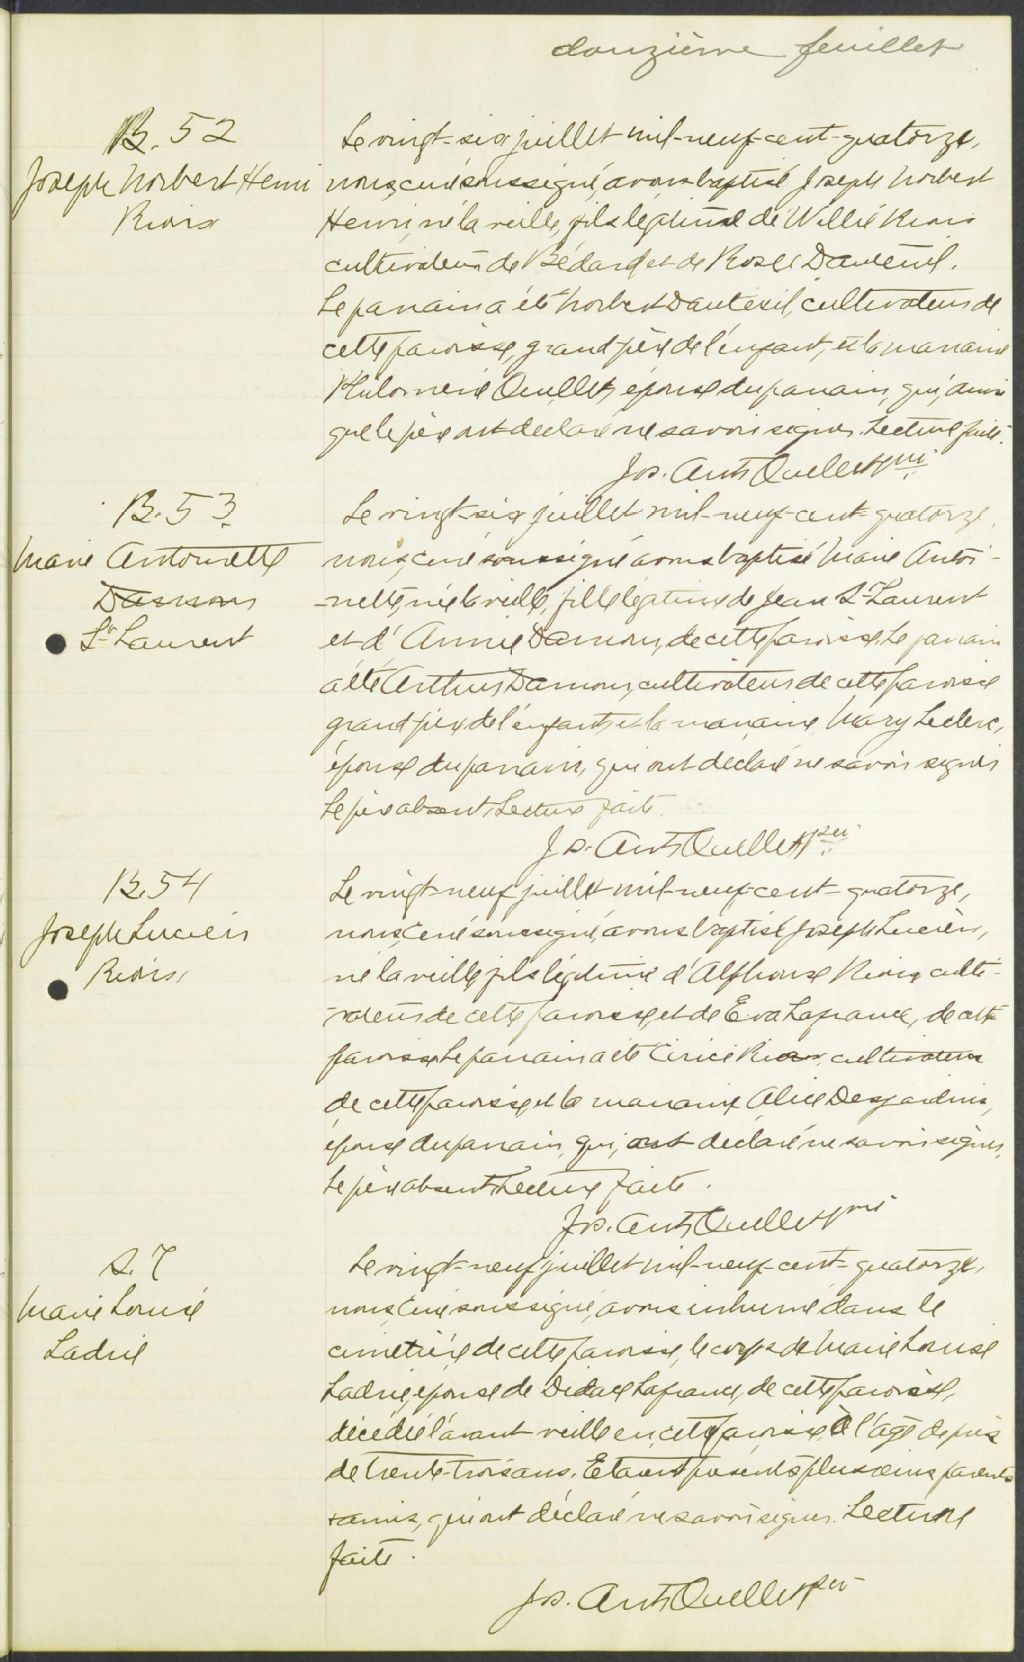 douzième feuillet
B. 52
Joseph Norbert Henri
Rioux
Le vingt-six juillet mil-neuf-cent-quatorze,
nous, curé soussigné, avons baptisé Joseph Norbert
Henri, né la veille, fils légitime de Willié Rioux
cultivateur de Bédard et de Rose Dauteuil.
Le parrain a été Norbert Dauteuil, cultivateur de
cette paroisse, grand père de l'enfant, et la marraine
Philomène Ouellet, épouse du parrain, qui, ainsi
que le père ont déclaré ne savoir signer. Lecture faite.
Jos. Ant. Ouellet ptre
B. 53
Marie Antoinette
Damours
St-Laurent
Le vingt-six juillet mil-neuf-cent-quatorze,
nous, curé soussigné avons baptisé Marie Antoi-
-nette, née la veille, fille légitime de Jean St-Laurent
et d' Annie Damours, de cette paroisse. Le parrain
a été Arthur Damours, cultivateur de cette paroisse
grand père de l'enfant, et la marraine Mary Leclerc,
épouse du parrain, qui ont déclaré ne savoir signer
Le père absent. Lecture faite.
Jos. Ant. Ouellet ptre
B. 54
Joseph Lucien
Rioux
Le vingt-neuf juillet mil-neuf-cent-quatorze,
nous, curé soussigné, avons baptisé Joseph Lucien,
né la veille fils légitime d'Alphonse Rioux culti-
-vateur de cette paroisse, et de Eva Lafrance, de cette
paroisse. Le parrain a été Cirice Rioux, cultivateur
de cette paroisse et la marraine Alice Desjardins,
épouse du parrain, qui, ont déclaré ne savoir signer,
Le père absent. Lecture faite.
Jos. Ant. Ouellet ptre
S. 7
Marie Louise
Ladrie
Le vingt-neuf juillet mil-neuf-cent-quatorze,
nous, curé soussigné, avons inhumé dans le
cimetière de cette paroisse, le corps de Marie Louise
Ladrie, épouse de Didace Lafrance, de cette paroisse,
décédée l'avant veille en cette paroisse, à l'âge de près
de trente-trois ans. Etaient présents plusieurs parents
& amis, qui ont déclaré ne savoir signer. Lecture
faite.
Jos. Ant. Ouellet ptre